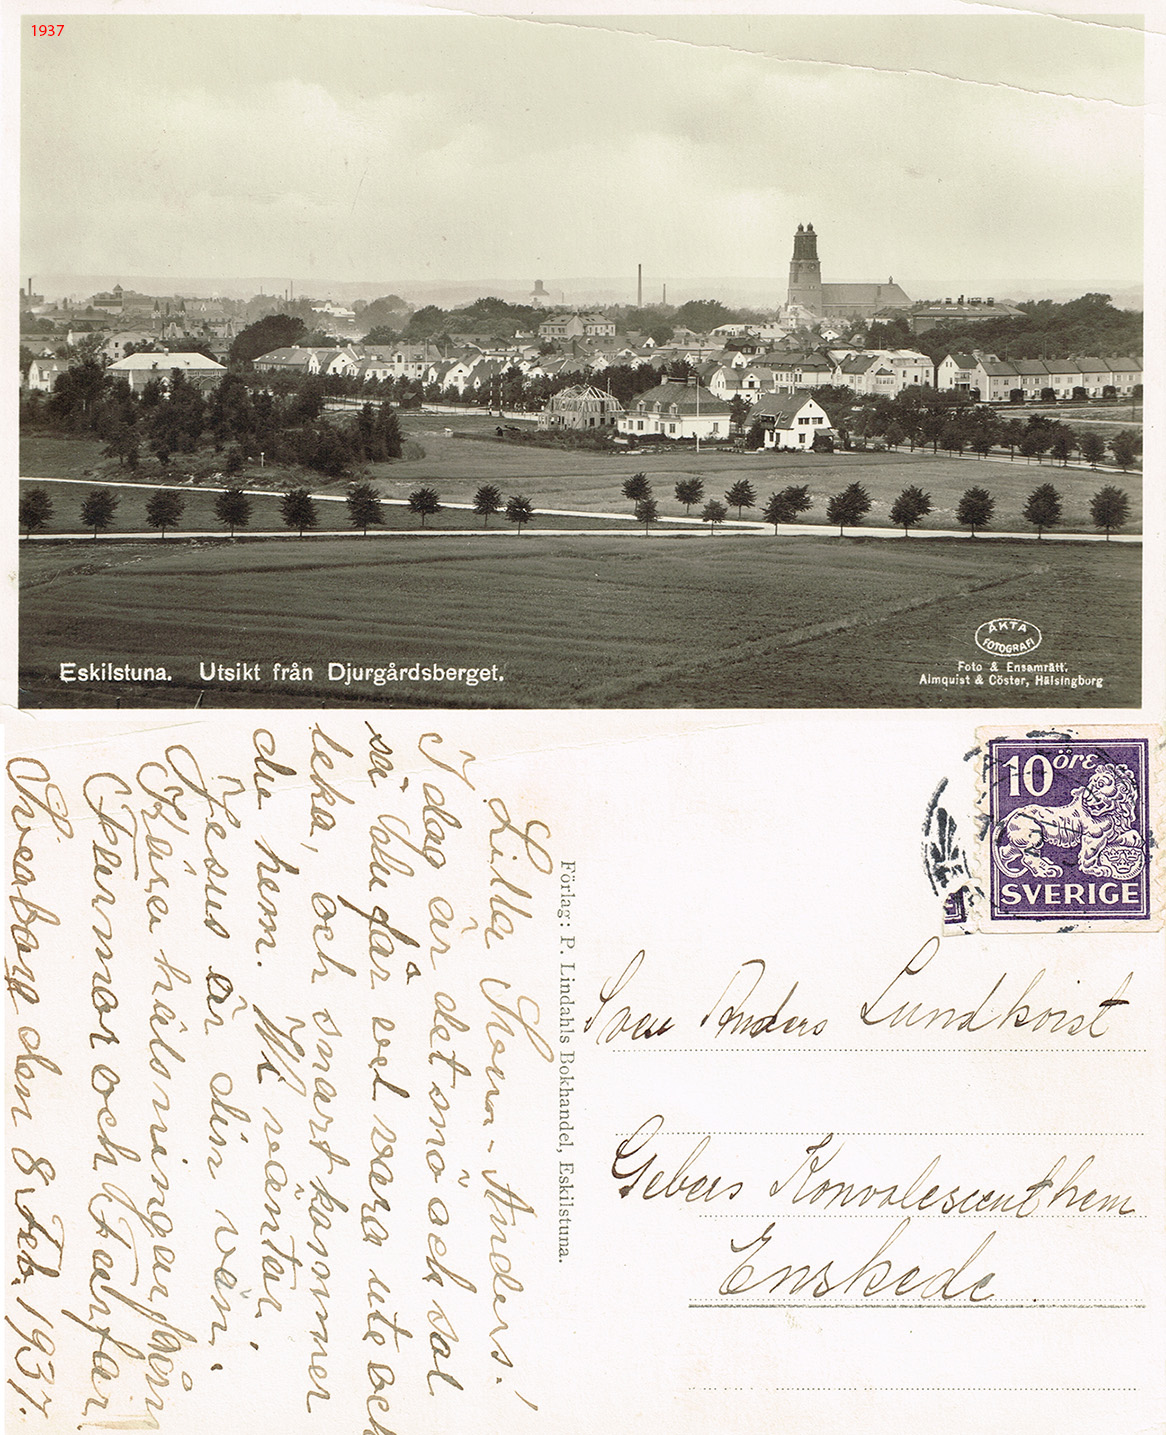 1937
Eskilstuna. Utsikt från Djurgårdsberget.
ÄKTA
FOTOGRAFI
Foto & Ensamrätt.
Almquist & Cöster, Hälsingborg
Lilla Sven-Anders!
I dag är det snö och sol
så du får väl vara ute och
leka, och snart kommer
du hem. Vi väntar.
Jesus är din vän.
Kära hälsningar från
Farmor och Farfar
den 8 Feb. 1937.
Förlag: P. Lindahls Bokhandel, Eskilstuna.
10 öre
SVERIGE
Sven Anders Lundkvist
Gebers Konvalescenthem
Enskede